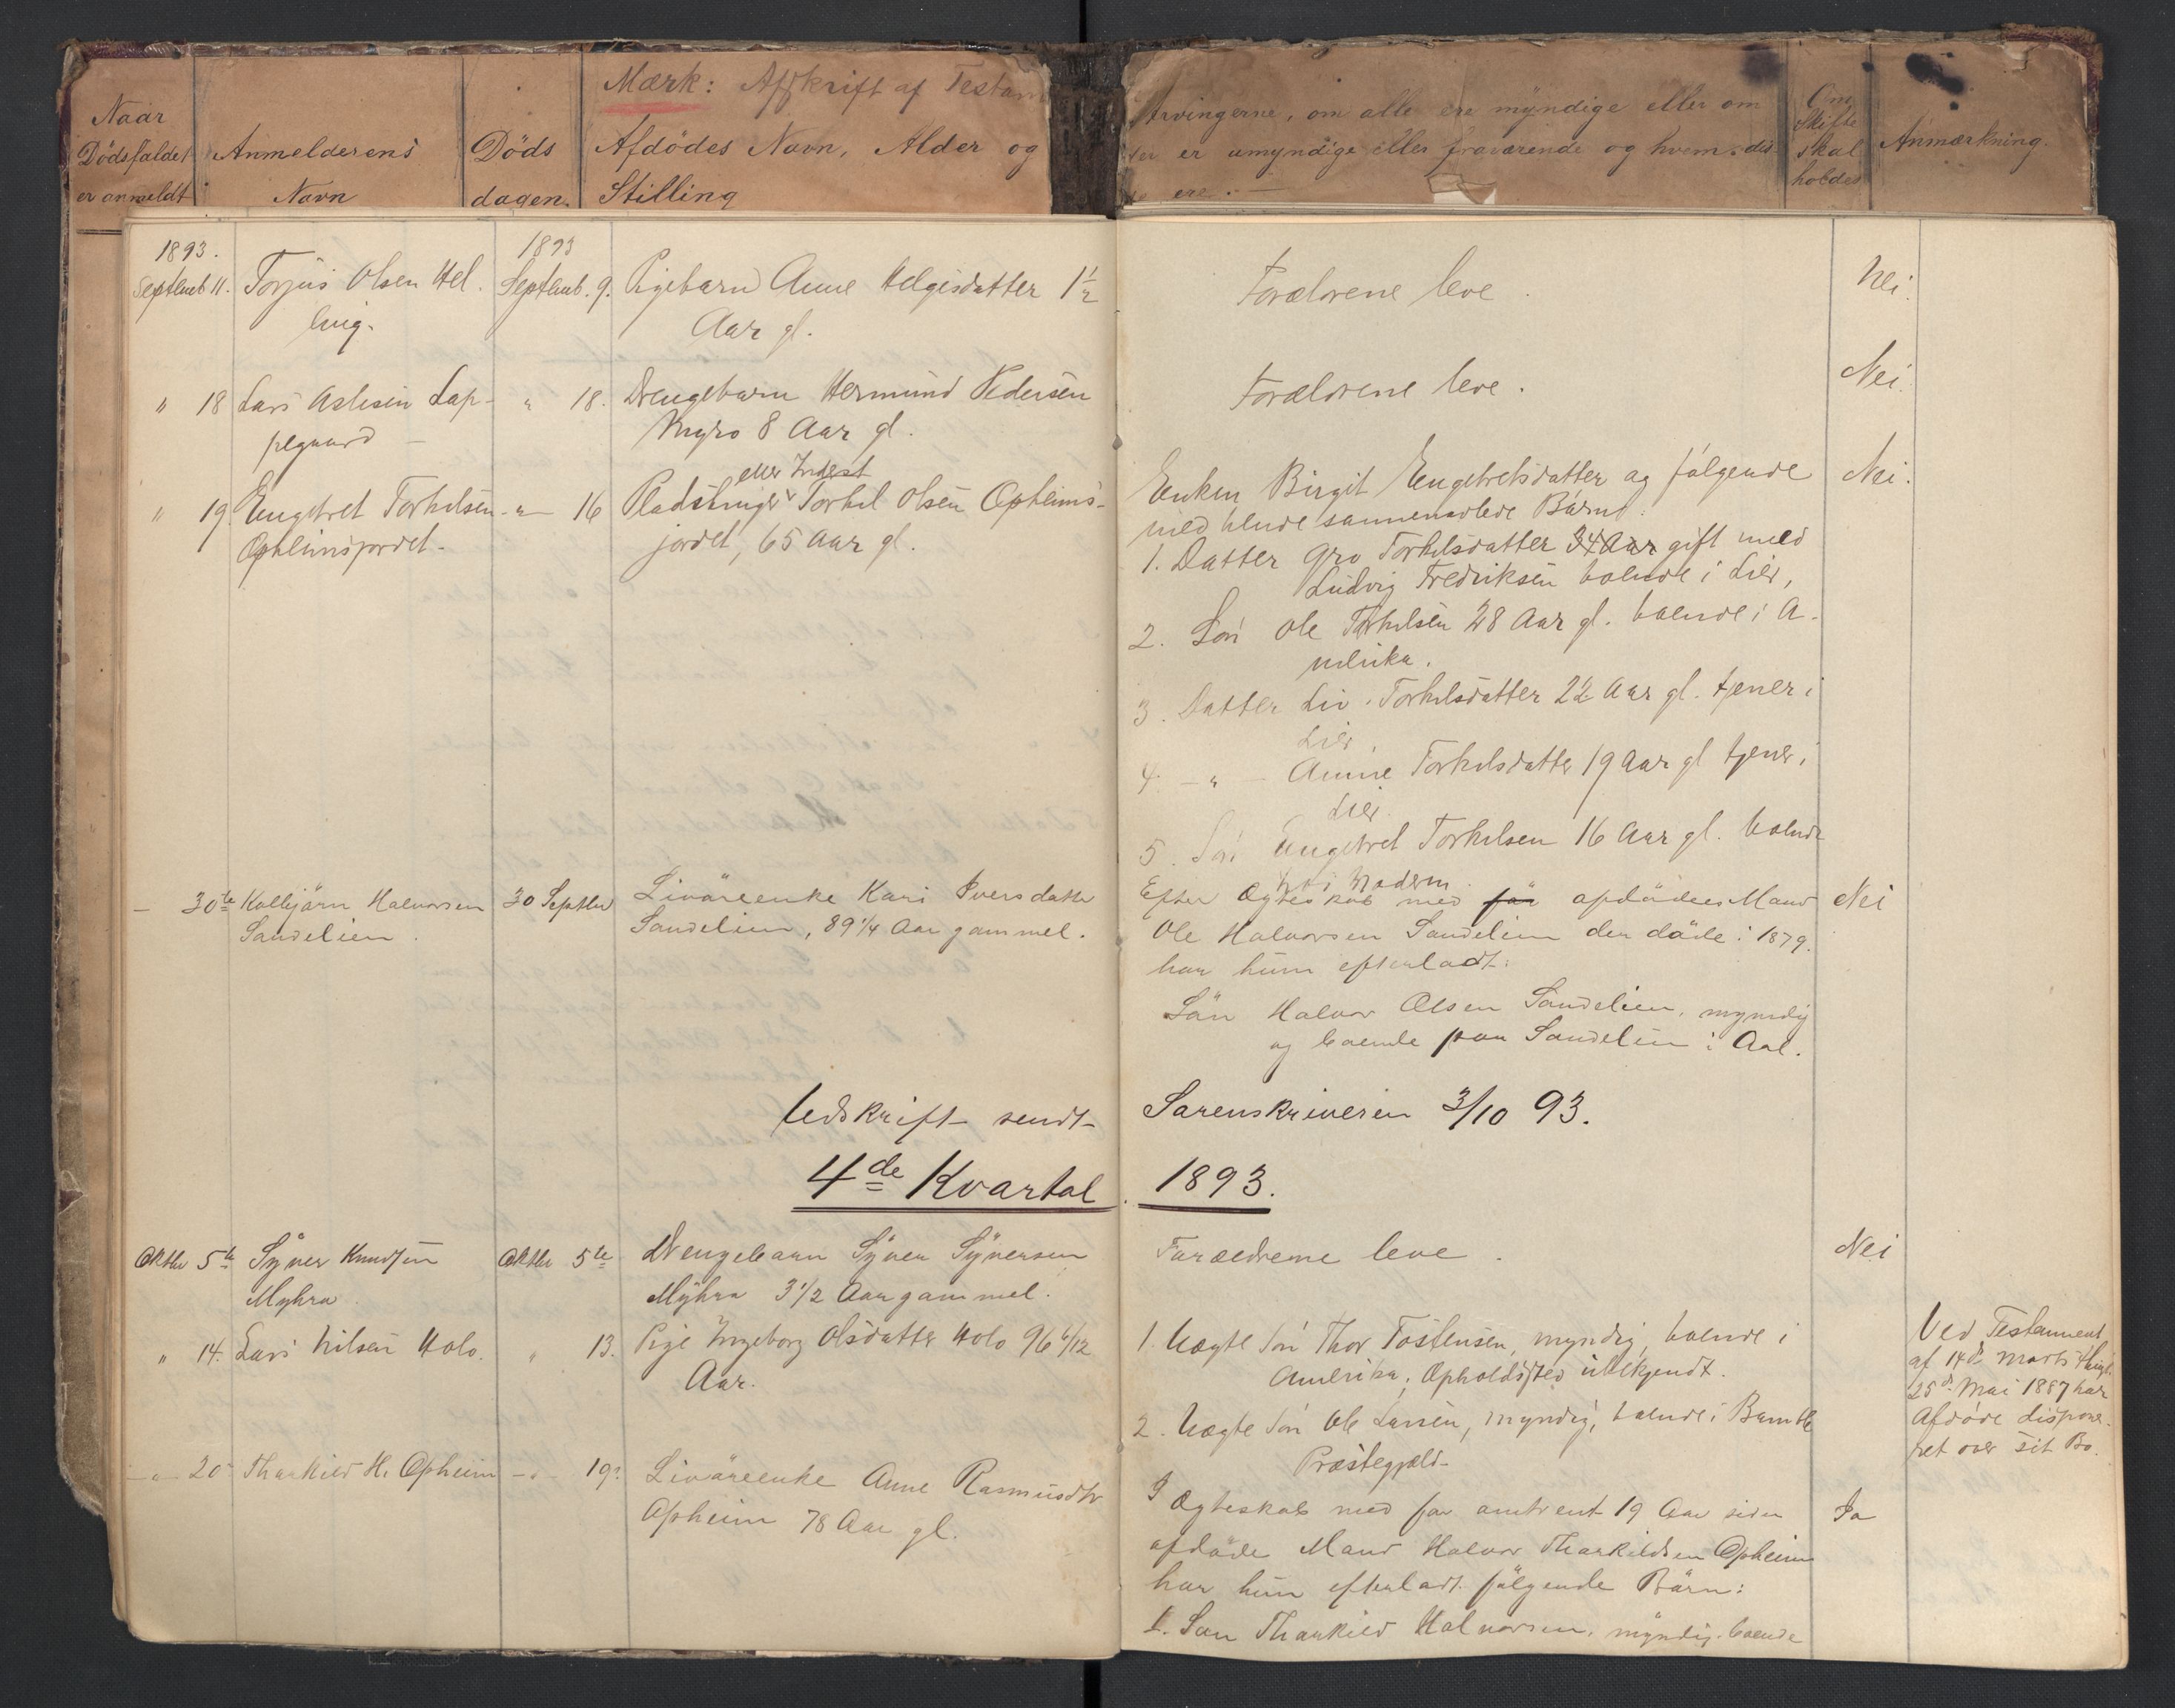 Mærk: Afskrift af Testam
Naar
Dödsfaldet
er anmeldt
Anmelderens
Navn
Döds
dagen.
Afdödes Navn, Alder og
Stilling
Arvingerne, om alle ere myndige eller om
er umyndige eller fraværende og hvem
ere.
Om
Skifte
skal
holdes
Anmærkning.
1893.
Septemb 11. Torjus Olsen Hel
ling.
1893
Septemb. 9. Pigebarn Anne Helgisdatter 1½
Aar gl.
Forældrene leve.
Nei.
" 18 Lars Aslesen Lap-
pegaard
" 18. Drengebarn Hermund Pedersen
Myro 8 Aar gl.
Forældrene leve.
Nei.
" 19. Engebret Torkelsen
Opheimsjordet.
" 16 Pladsbruger Torkel Olsen Opheims-
eller Inderst
jordet, 65 Aar gl.
Enken Birgit Engebretsdatter og følgende
med hende sammenavlede Børn:
1. Datter Gro Torkelsdatter 34 Aar gift med
Ludvig Fredriksen boende i Lier,
2. Søn Ole Torkelsen 28 Aar gl. boende i A-
merika.
3. Datter Liv Torkelsdatter 22 Aar gl. tjener i
Lier
4. - " - Anne Torkelsdatter 19 Aar gl tjener i
Lier.
5. Søn Engebret Torkelsen 16 Aar gl. boende
hos Modern.
Nei.
- 30te Kolbjörn Halvorsen
Sandelien.
30 Septbr Livöreenke Kari Iversdatter
Sandelien, 89 1/4 Aar gammel.
Efter Ægteskab med før afdödes Mand
Ole Halvorsen Sandelien der döde i 1879.
har hun efterladt:
Sön Halvor Olsen Sandelien, myndig
og boende paa Sandelien i Aal.
Nei
Udskrift sendt Sorenskriveren 3/10 93.
4de Kvartal 1893.
Oktbr 5te Syver Knudsen
Myhra
Oktbr 5te Drengebarn Syver Syversen
Myhra 3 1/2 Aar gammel.
Forældrene leve.
Nei
" 14. Lars Nilsen Holo.
" 13. Pige Ingeborg Olsdatter Holo 96 6/12
Aar.
1. Uægte Søn Thor Tostensen, myndig, boende i
Amerika, Opholdssted ubekjendt.
2. Uægte Søn Ole Larsen, myndig, boende i Bamble
Præstegjeld
Ved Testament
af 14de Marts
25de Mai 1887 har
Afdøde dispone-
ret over sit Bo.
" 20 Tharkild H. Opheim
" 19. Livöreenke Anne Rasmusdtr
Opheim 78 Aar gl.
I Ægteskab med for omtrent 19 Aar siden
afdöde Mand Halvor Tharkildsen Opheim
har hun efterladt fölgende Börn:
1. Sön Tharkild Halvorsen, myndig. boende
Ja